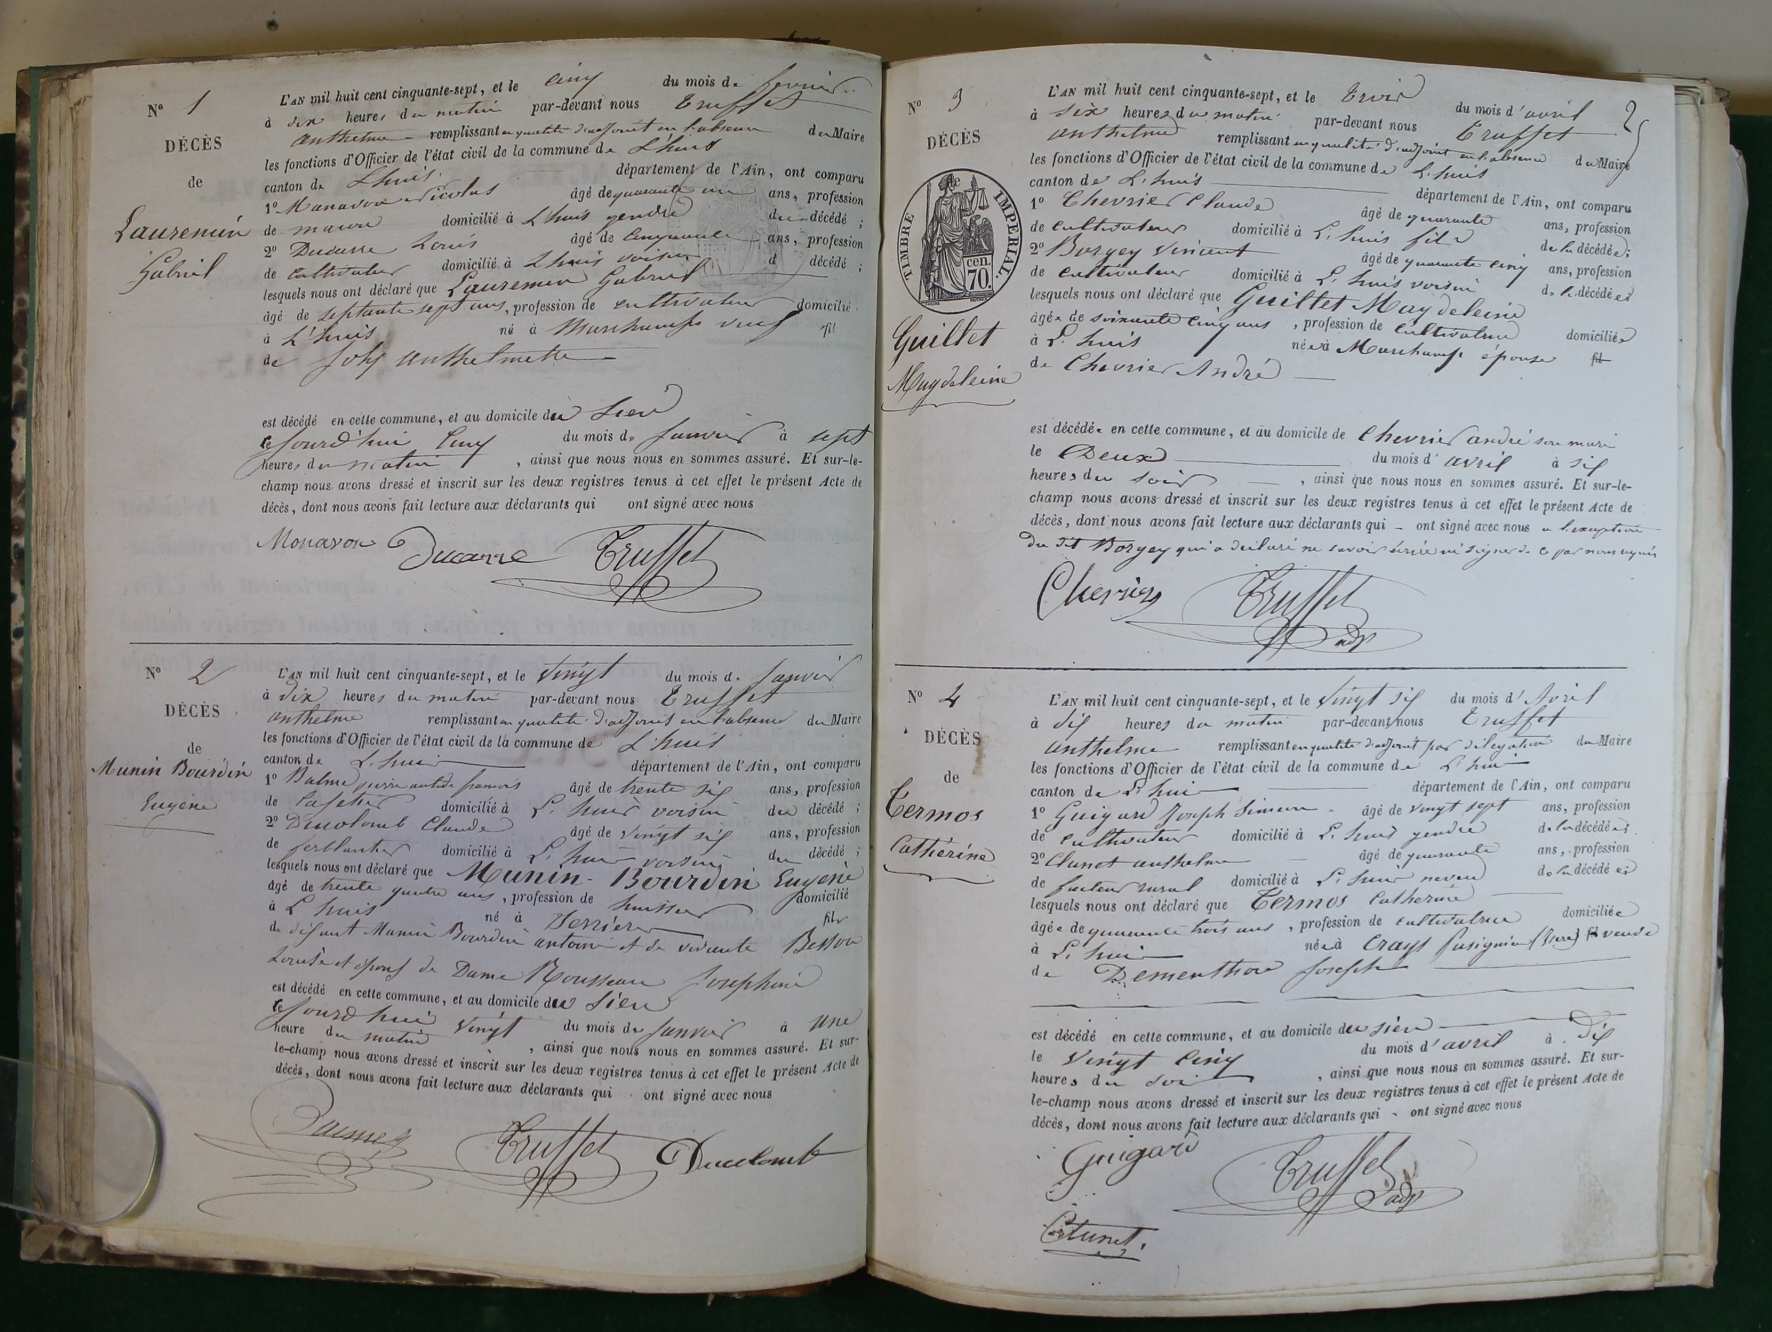 N° 1
DÉCÈS
de
Lauremin
Gabriel
L'AN mil huit cent cinquante-sept, et le cinq du mois de février
à dix heures du matin par-devant nous Truffet
anthelme remplissant en qualité d'adjoint en l'absence du Maire
les fonctions d'Officier de l'état civil de la commune de L'huis
canton de L'huis département de l'Ain, ont comparu
1° Manavon Nicolas âgé de quarante un ans, profession
de domicilié à L'huis gendre du décédé ;
2° Ducarre Louis âgé de cinquante ans, profession
de cultivateur domicilié à L'huis voisin d décédé ;
lesquels nous ont déclaré que Lauremin Gabriel
âgé de septante sept ans, profession de cultivateur domicilié
à L'huis né à Marchamp veuf fil
de Joly anthelmette
est décédé en cette commune, et au domicile du sien
ce jourd'hui cinq du mois de janvier à sept
heures du matin, ainsi que nous nous en sommes assuré. Et sur-le-
champ nous avons dressé et inscrit sur les deux registres tenus à cet effet le présent Acte de
décès, dont nous avons fait lecture aux déclarants qui ont signé avec nous
Monavon Ducarre Truffet
N° 2
DÉCÈS
de
Munin Bourdin
Eugène
L'AN mil huit cent cinquante-sept, et le vingt du mois de janvier
à dix heures du matin par-devant nous Truffet
anthelme remplissant en qualité d'adjoint en l'absence du Maire
les fonctions d'Officier de l'état civil de la commune de L'huis
canton de L'huis département de l'Ain, ont comparu
1° Balme pierre françois âgé de trente six ans, profession
de cafetier domicilié à L'huis voisin du décédé ;
2° Ducolomb Claude âgé de vingt six ans, profession
de ferblantier domicilié à L'huis voisin du décédé ;
lesquels nous ont déclaré que Munin-Bourdin Eugène
âgé de trente quatre ans, profession de huissier domicilié
à L'huis né à fils
de défunt Munin Bourdin antoine et de vivante Besson
Louise et époux de Dame Rousseau Joséphine
est décédé en cette commune, et au domicile du sien
ce jourd'hui vingt du mois de janvier à une
heure du matin, ainsi que nous nous en sommes assuré. Et sur-
le-champ nous avons dressé et inscrit sur les deux registres tenus à cet effet le présent Acte de
décès, dont nous avons fait lecture aux déclarants qui ont signé avec nous
Balme Truffet Ducolomb
2
N° 3
DÉCÈS
TIMBRE IMPÉRIAL
cen.
70.
Guillet
Magdeleine
L'AN mil huit cent cinquante-sept, et le trois du mois d'avril
à six heures du matin par-devant nous Truffet
anthelme remplissant en qualité d'adjoint en l'absence du Maire
les fonctions d'Officier de l'état civil de la commune de L'huis
canton de L'huis département de l'Ain, ont comparu
1° Chevrier Claude âgé de quarante ans, profession
de cultivateur domicilié à L'huis fils de la décédée ;
2° Borgey Vincent âgé de quarante cinq ans, profession
de cultivateur domicilié à L'huis voisin de la décédée
lesquels nous ont déclaré que Guillet Magdeleine
âgée de soixante cinq ans, profession de cultivatrice domiciliée
à L'huis née à Marchamp épouse fil
de Chevrier André
est décédée en cette commune, et au domicile de Chevrier andré son mari
le Deux du mois d'avril à six
heures du soir, ainsi que nous nous en sommes assuré. Et sur-le-
champ nous avons dressé et inscrit sur les deux registres tenus à cet effet le présent Acte de
décès, dont nous avons fait lecture aux déclarants qui ont signé avec nous a l'exception
du dit Borgey qui a déclaré ne savoir écrire ni signer de ce par nous requis
Chevrier Truffet
adj
N° 4
DÉCÈS
de
Termos
Cathérine
L'AN mil huit cent cinquante-sept, et le vingt six du mois d'Avril
à dix heures du matin par-devant nous Truffet
anthelme remplissant en qualité d'adjoint par délégation du Maire
les fonctions d'Officier de l'état civil de la commune de L'huis
canton de L'huis département de l'Ain, ont comparu
1° Guigard Joseph Simeon âgé de vingt sept ans, profession
de cultivateur domicilié à L'huis gendre de la décédée
2° Clunet anthelme âgé de quarante ans, profession
de facteur rural domicilié à L'huis neveu de la décédée
lesquels nous ont déclaré que Termos Catherine
âgée de quarante trois ans, profession de cultivatrice domiciliée
à L'huis née à Crays Pusignieu (Isère) veuve
de Dementhon Joseph
est décédé en cette commune, et au domicile du sien
le vingt cinq du mois d'avril à dix
heures du soir, ainsi que nous nous en sommes assuré. Et sur-
le-champ nous avons dressé et inscrit sur les deux registres tenus à cet effet le présent Acte de
décès, dont nous avons fait lecture aux déclarants qui ont signé avec nous
Guigard Truffet
adj
Clunet